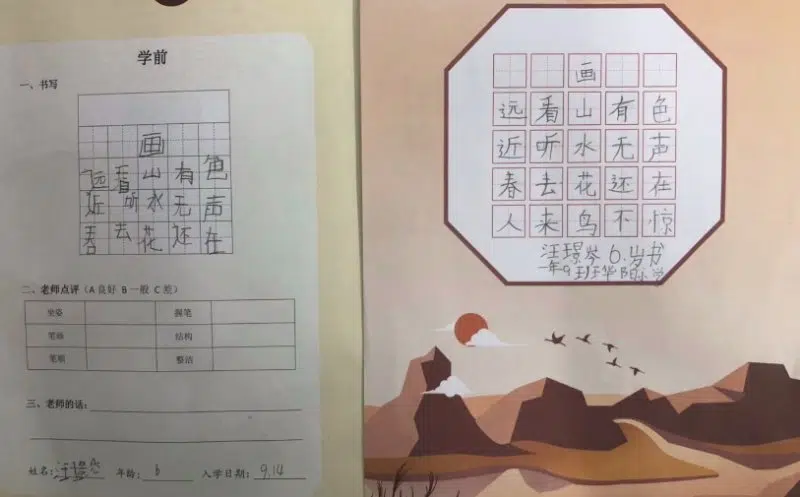 学前
一、书写
画
远看山有色
近听水无声
春去花还在
二、老师点评（A 良好 B 一般 C 差）
坐姿 握笔
笔画 结构
笔顺 整洁
三、老师的话：
姓名：汪璟岑 年龄：6 入学日期：9.14
画
远看山有色
近听水无声
春去花还在
人来鸟不惊
汪璟岑 6.岁书
一年9班华阳小学